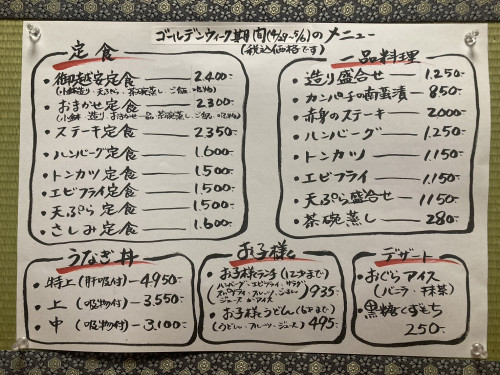 ゴールデンウィーク期間(4/29〜5/6)のメニュー
(税込価格です)
定食
・御越安定食 2.400-
(小鉢・造り・天ぷら・茶碗蒸し・ご飯・吸物)
・おまかせ定食 2.300-
(小鉢・造り・おまかせ一品・茶碗蒸し・ご飯・吸物)
・ステーキ定食 2.350-
・ハンバーグ定食 1.600-
・トンカツ定食 1.500-
・エビフライ定食 1.500-
・天ぷら定食 1.500-
・さしみ定食 1.600-
一品料理
・造り盛合せ 1.250-
・カンパチの南蛮漬 850-
・赤身のステーキ 2000-
・ハンバーグ 1.250-
・トンカツ 1.150-
・エビフライ 1.150-
・天ぷら盛合せ 1150-
・茶碗蒸し 280-
うなぎ丼
・特上(肝吸付) 4.950-
・上(吸物付) 3.550-
・中(吸物付) 3.100-
お子様
・お子様ランチ(12才まで)
(ハンバーグ・エビフライ・サラダ
フルーツ
ジュース or アイス) 935-
・お子様うどん(6才まで)
(うどん・フルーツ・ジュース) 495-
デザート
・おぐらアイス
(バニラ・抹茶)
・黒糖くずもち
250-